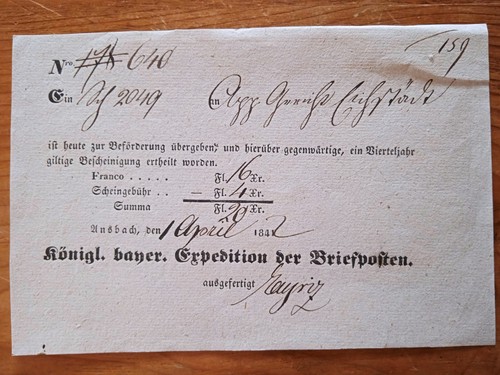 159
Nro. 178 640
Ein Sch 2049 an App. Gericht Eichstädt
ist heute zur Beförderung übergeben, und hierüber gegenwärtige, ein Vierteljahr
giltige Bescheinigung ertheilt worden.
Franco . . . . . Fl. 16 Xr.
Scheingebühr . . — Fl. 4 Xr.
Summa Fl. 20 Xr.
Ansbach, den 1 April 1842
Königl. bayer. Expedition der Briefposten.
ausgefertigt